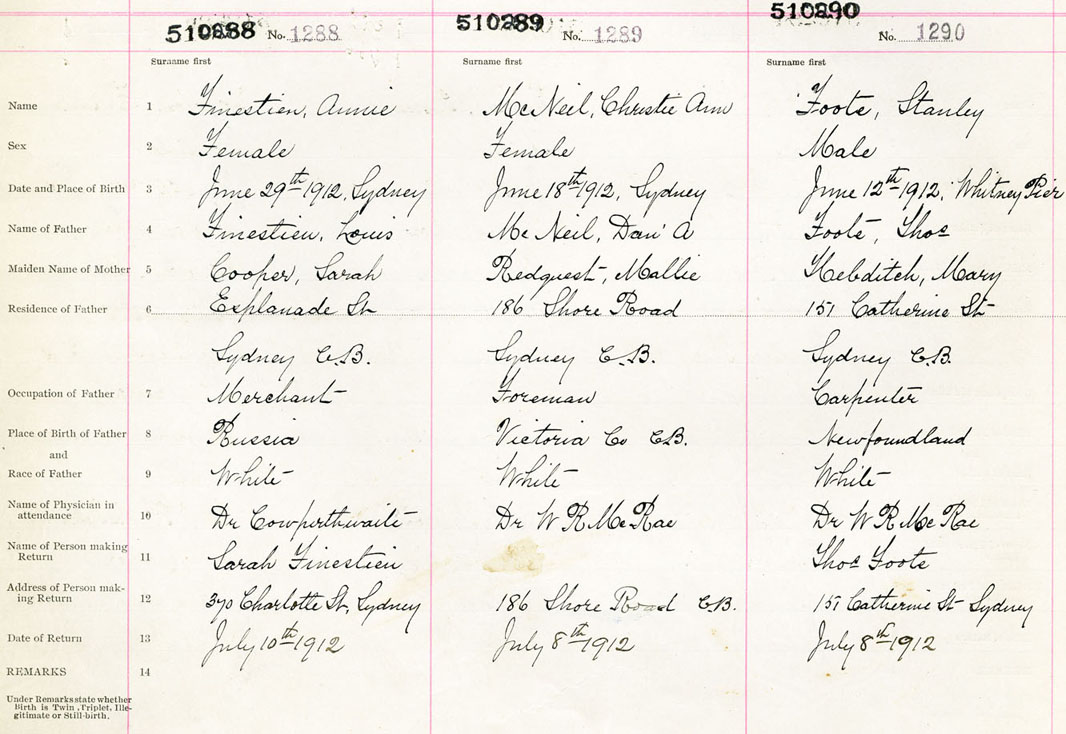 510288 No. 1288 510289 No. 1289 510290 No. 1290
Surname first Surname first Surname first
Name 1 Finestien, Annie McNeil, Christie Ann Foote, Stanley
Sex 2 Female Female Male
Date and Place of Birth 3 June 29th 1912, Sydney June 18th 1912, Sydney June 12th 1912, Whitney Pier
Name of Father 4 Finestien, Louis McNeil, Dan' A Foote, Thos
Maiden Name of Mother 5 Cooper, Sarah Redquest, Mallie Hebditch, Mary
Residence of Father 6 Esplanade St 186 Shore Road 151 Catherine St
Sydney C.B. Sydney C.B. Sydney C.B.
Occupation of Father 7 Merchant Foreman Carpenter
Place of Birth of Father 8 Russia Victoria Co C.B. Newfoundland
and
Race of Father 9 White White White
Name of Physician in
attendance 10 Dr Cowperthwaite Dr W R McRae Dr W R McRae
Name of Person making
Return 11 Sarah Finestien Thos Foote
Address of Person mak-
ing Return 12 370 Charlotte St, Sydney 186 Shore Road C.B. 151 Catherine St Sydney
Date of Return 13 July 10th 1912 July 8th 1912 July 8th 1912
REMARKS 14
Under Remarks state whether
Birth is Twin, Triplet, Ille-
gitimate or Still-birth.